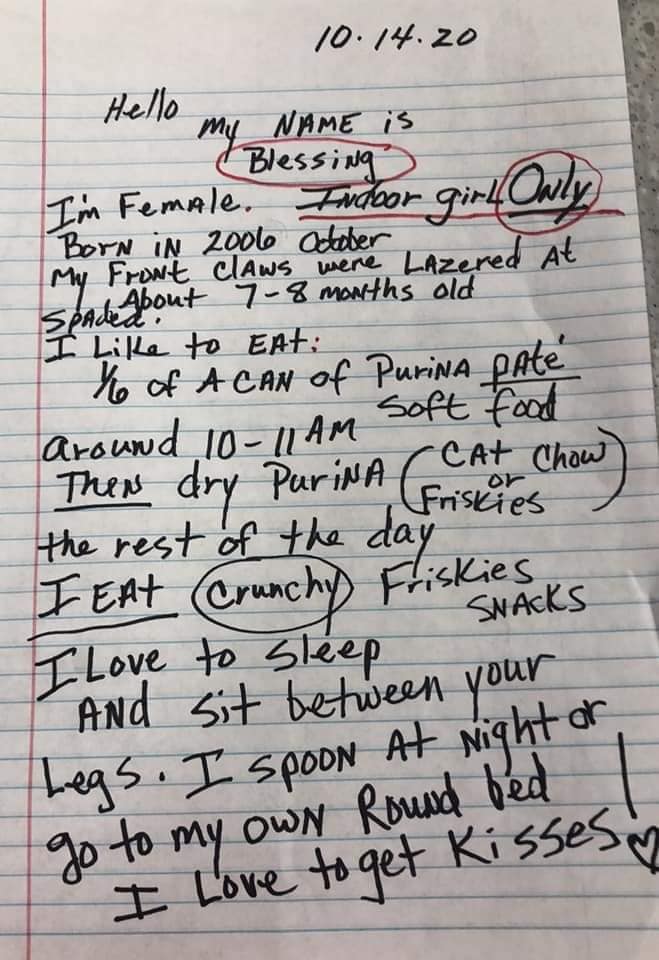 10.14.20
Hello my NAME is
Blessing
I'm Female. Indoor girl Only
Born in 2006 October
My Front claws were Lazered At
About 7-8 months old
Spaded.
I Like to EAt:
1/6 of A CAN of Purina pAté
Soft food
around 10-11 AM
Then dry Purina (CAt Chow
or
Friskies)
the rest of the day
I EAt Crunchy Friskies
SNACKS
I Love to sleep
ANd sit between your
Legs. I spoon At Night or
go to my own Round bed
I Love to get Kisses! ♡